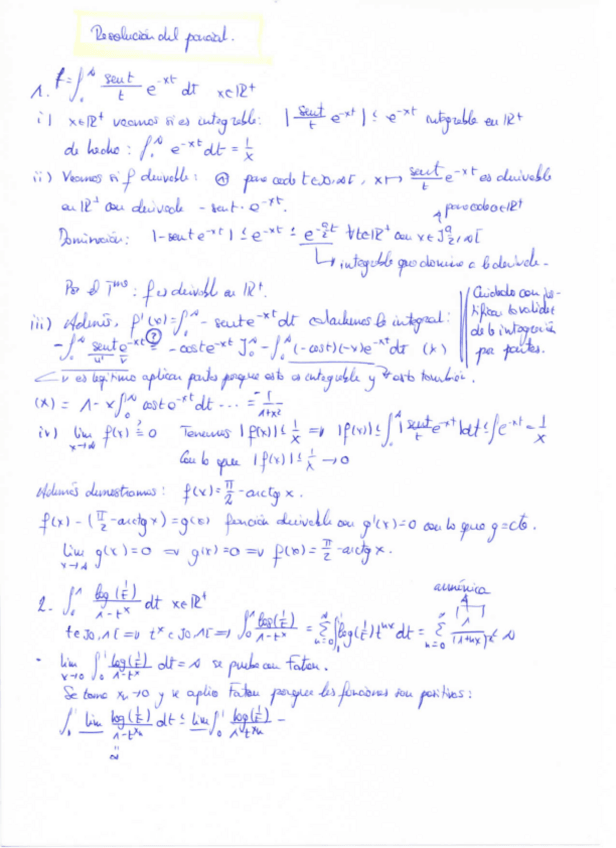 Resolución del parcial.
1. f = ∫₀^∞ sen t / t e^{-xt} dt x ∈ ℝ⁺
i) x ∈ ℝ⁺ veamos si es integrable: | sen t / t e^{-xt} | ≤ e^{-xt} integrable en ℝ⁺
de hecho: ∫₀^∞ e^{-xt} dt = 1/x
ii) Veamos si f derivable: ① para cada t ∈ ]0,∞[, x ↦ sen t / t e^{-xt} es derivable
en ℝ⁺ con derivada - sen t · e^{-xt}.
para cada a ∈ ℝ⁺
Dominación: |- sen t e^{-xt}| ≤ e^{-xt} ≤ e^{-a/2 t} ∀t ∈ ℝ⁺ con x ∈ ]a/2, ∞[
↳ integrable que domina a la derivada.
Por el T^ma: f es derivable en ℝ⁺.
Cuidado con jus-
tificar la validez
de la integración
por partes.
iii) Además, f'(x) = ∫₀^∞ - sen t e^{-xt} dt calculemos la integral:
- ∫₀^∞ sen t e^{-xt} = - cos t e^{-xt} ]₀^∞ - ∫₀^∞ (- cos t)(-x) e^{-xt} dt (*)
u' v
es legítimo aplicar partes porque esto es integrable y esto también.
(*) = 1 - x ∫₀^∞ cos t e^{-xt} dt ... = - 1 / 1+x²
iv) lim x→∞ f(x) =? 0 Tenemos |f(x)| ≤ 1/x ⇒ |f(x)| ≤ ∫₀^∞ | sen t / t e^{-xt} | dt ≤ ∫ e^{-xt} = 1/x
Con lo que |f(x)| ≤ 1/x → 0
Además demostramos: f(x) = π/2 - arctg x.
f(x) - (π/2 - arctg x) = g(x) función derivable con g'(x) = 0 con lo que g = cte.
lim x→∞ g(x) = 0 ⇒ g(x) = 0 ⇒ f(x) = π/2 - arctg x.
2. ∫₀¹ log(1/t) / 1-t^x dt x ∈ ℝ⁺
armónica
t ∈ ]0,1[ ⇒ t^x ∈ ]0,1[ ⇒ ∫₀¹ log(1/t) / 1-t^x = Σ_{n=0}^∞ ∫₀¹ log(1/t) t^{nx} dt = Σ_{n=0}^∞ 1 / (1+nx)² < ∞
· lim x→0 ∫₀¹ log(1/t) / 1-t^x dt = ∞ se prueba con Fatou.
Se toma xₙ → 0 y se aplica Fatou porque las funciones son positivas:
∫₀¹ lim log(1/t) / 1-t^{xₙ} dt ≤ lim ∫₀¹ log(1/t) / 1-t^{xₙ} -
=
∞